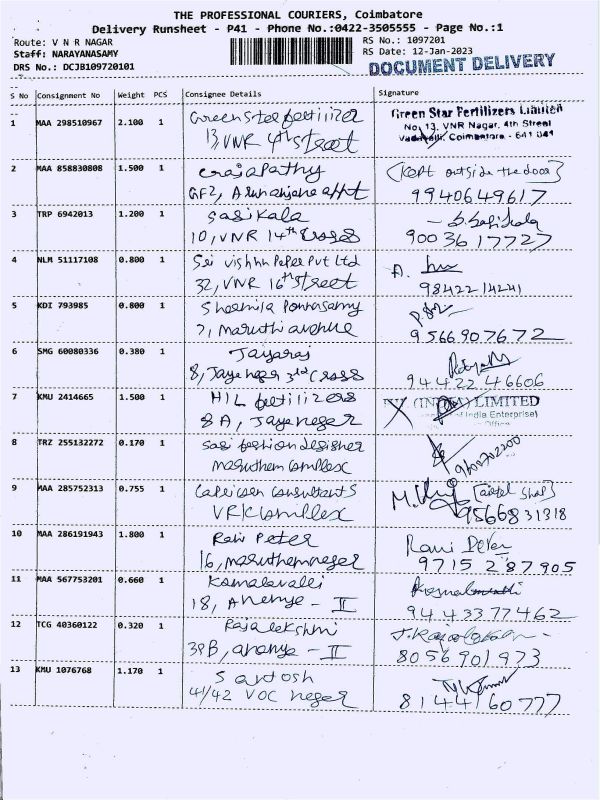 THE PROFESSIONAL COURIERS, Coimbatore
Delivery Runsheet - P41 - Phone No.:0422-3505555 - Page No.:1
Route: V N R NAGAR
RS No.: 1097201
Staff: NARAYANASAMY
RS Date: 12-Jan-2023
DRS No.: DCJB109720101
DOCUMENT DELIVERY
S No Consignment No Weight PCS Consignee Details Signature
1 MAA 298510967 2.100 1 Green Star fertilizer
13, VNR 4th street
Green Star Fertilizers Limited
No. 13, VNR Nagar, 4th Street
Vadavalli, Coimbatore - 641 041
2 MAA 858830808 1.500 1
GF2,
(Kept outside the door)
9940649617
3 TRP 6942013 1.200 1 Sasikala
10, VNR 14th Cross
90036 17727
4 NLM 51117108 0.800 1 Sri Vishnu Paper Pvt Ltd
32, VNR 16th street
98422 14241
5 KDI 793985 0.800 1 Ponnusamy
7, maruthi avenue
9566907672
6 SMG 60080336 0.380 1 Jaiyaraj
8, Jaya nagar 3rd Cross
94422 46606
7 KMU 2414665 1.500 1 HIL fertilizers
8 A, Jaya nagar
(INDIA) LIMITED
of India Enterprise)
Office
8 TRZ 255132272 0.170 1 Sasi fashion designer
maruthem Complex
9 MAA 285752313 0.755 1 Consultants
VRK Complex
[airtel shop]
9566831318
10 MAA 286191943 1.800 1 Ravi Peter
16, maruthamnagar
Ravi Peter
9715287905
11 MAA 567753201 0.660 1 Kamalavalli
18, Ananya - II
94433 77462
12 TCG 40360122 0.320 1 Rajalekshmi
39B, ananya - II
8056901973
13 KMU 1076768 1.170 1 Santosh
41/42 VOC nagar
8144160777